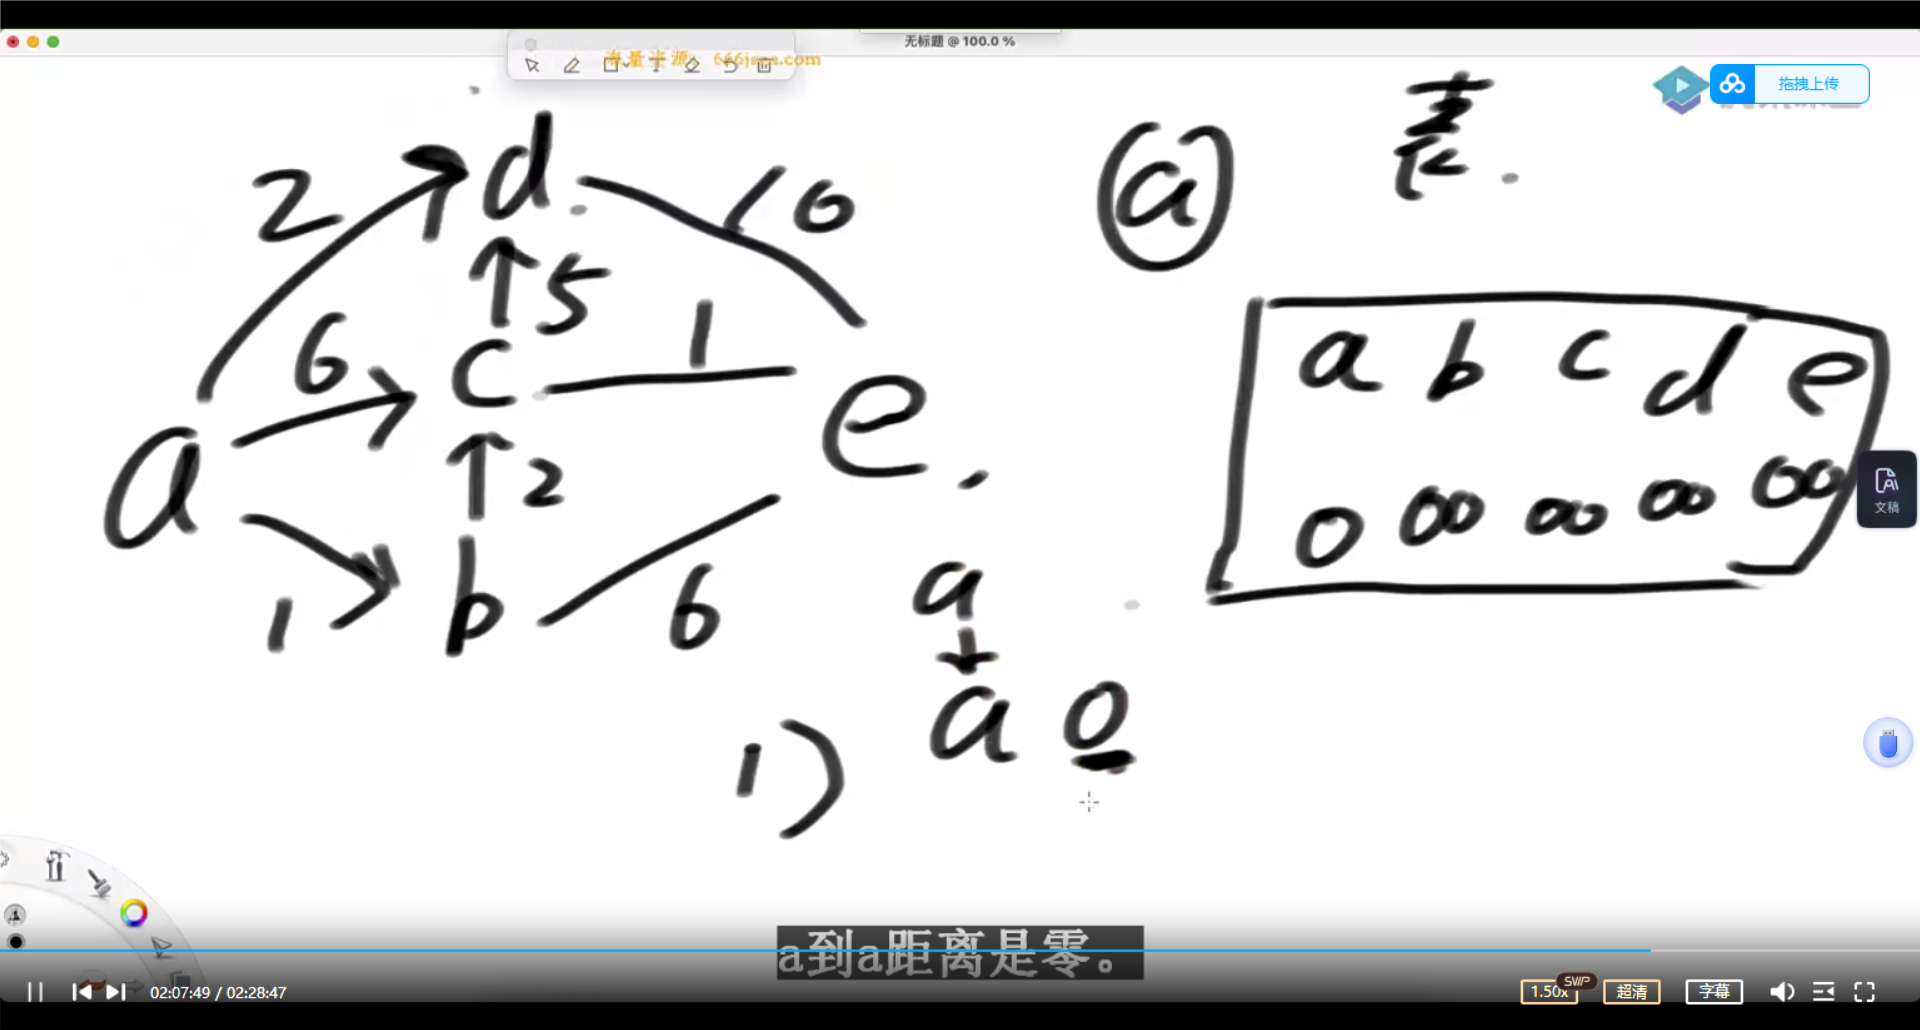 无标题 @ 100.0 %
666java.com
拖拽上传
表.
a
d
2
10
5
6
c
1
a
e
2
b
1
6
a b c d e
0 ∞ ∞ ∞ ∞
文稿
a
1) a 0
a到a距离是零。
02:07:49 / 02:28:47
1.50x
SVIP
超清
字幕